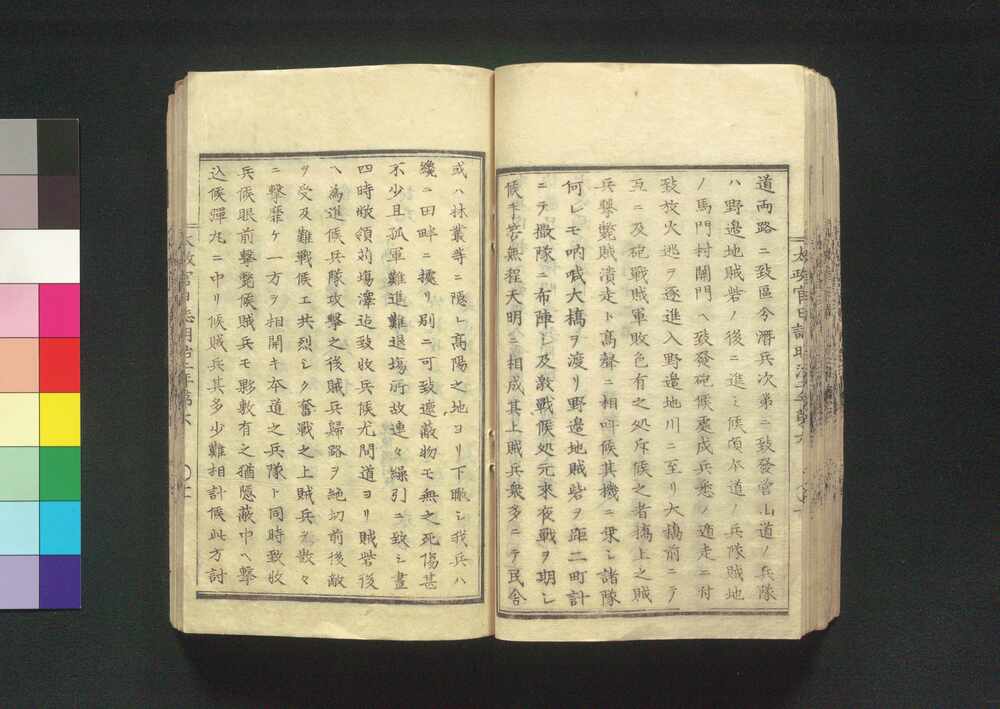 道両路ニ致區分潛兵次第ニ致發曾山道ノ兵隊
ハ野邊地賊砦ノ後ニ進ミ候頃本道ノ兵隊賊地
ノ馬門村關門ヘ致發砲候處戍兵悉ク遁走ニ付
致放火逃ヲ逐進入野邊地川ニ至リ大橋前ニテ
互ニ及砲戰賊軍敗色有之処斥候之者橋上之賊
兵撃斃賊潰走ト高聲ニ相呼候其機ニ乗シ諸隊
何レモ吶喊大橋ヲ渡リ野邊地賊砦ヲ距二町計
ニテ撒隊ニ布陣シ及激戰候処元來夜戰ヲ期シ
候手筈無程天明ニ相成其上賊兵衆多ニテ民舍
或ハ林叢等ニ隠レ高陽之地ヨリ下瞰シ我兵ハ
纔ニ田畔ニ據リ別ニ可致遮蔽物モ無之死傷甚
不少且孤軍難進難退塲所故連々繰引ニ致シ畫
四時歇領苅塲澤迠致收兵候尤間道ヨリ賊砦後
ヘ為進候兵隊攻撃之後賊兵歸路ヲ絶切前後敵
ヲ受及難戰候エ共烈シク奮戰之上賊兵ヲ散々
ニ撃靡ケ一方ヲ相開キ本道之兵隊ト同時致收
兵候眼前撃斃候賊兵モ夥敷有之猶隠蔽中ヘ撃
込候彈丸ニ中リ候賊兵其多少難相計候此方討